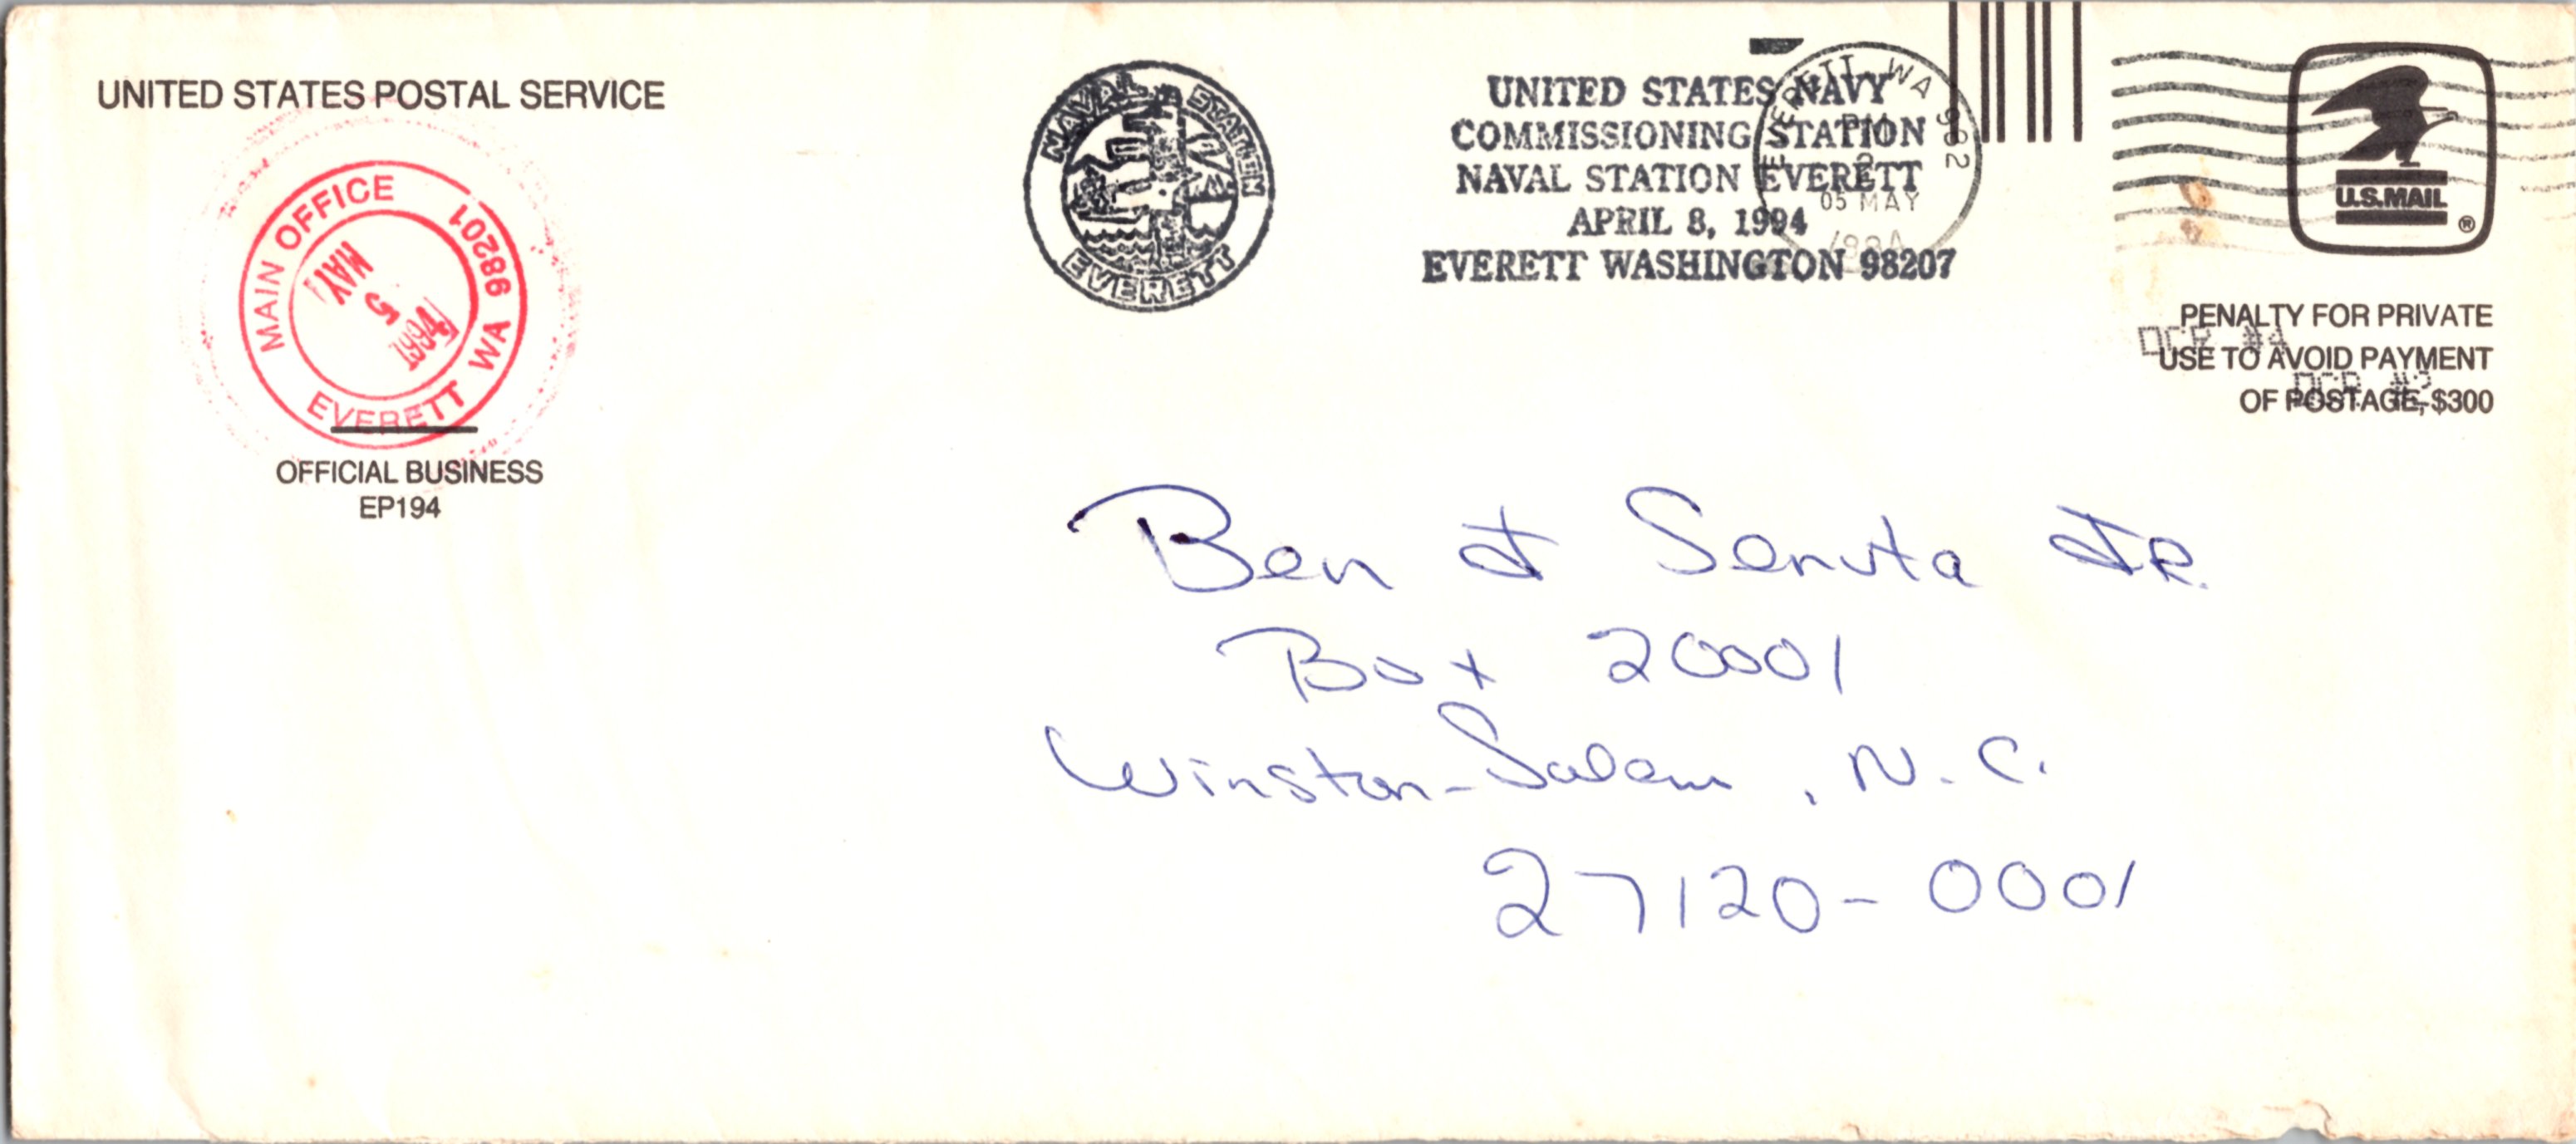 UNITED STATES POSTAL SERVICE
MAIN OFFICE
EVERETT WA 98201
MAY 5 1994
OFFICIAL BUSINESS
EP194
NAVAL STATION
EVERETT
UNITED STATES NAVY
COMMISSIONING STATION
NAVAL STATION EVERETT
APRIL 8, 1994
EVERETT WASHINGTON 98207
EVERETT WA 982
PM
2
05 MAY
1994
U.S.MAIL
®
PENALTY FOR PRIVATE
USE TO AVOID PAYMENT
OF POSTAGE, $300
OCR #4
OCR #2
Ben J Senuta JR.
Box 20001
Winston-Salem, N.C.
27120-0001